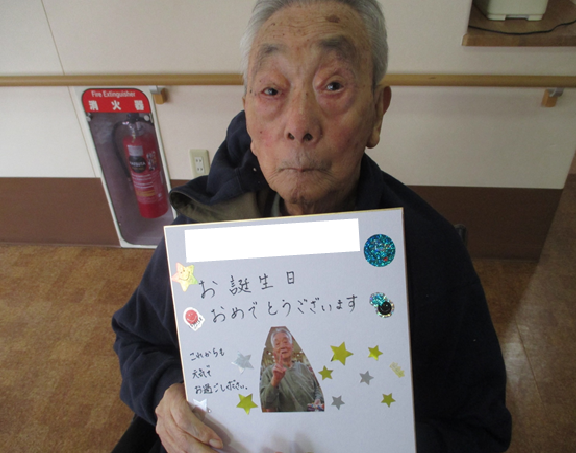 Fire Extinguisher
消火器
お誕生日
おめでとうございます
これからも
元気で
お過ごし下さい。